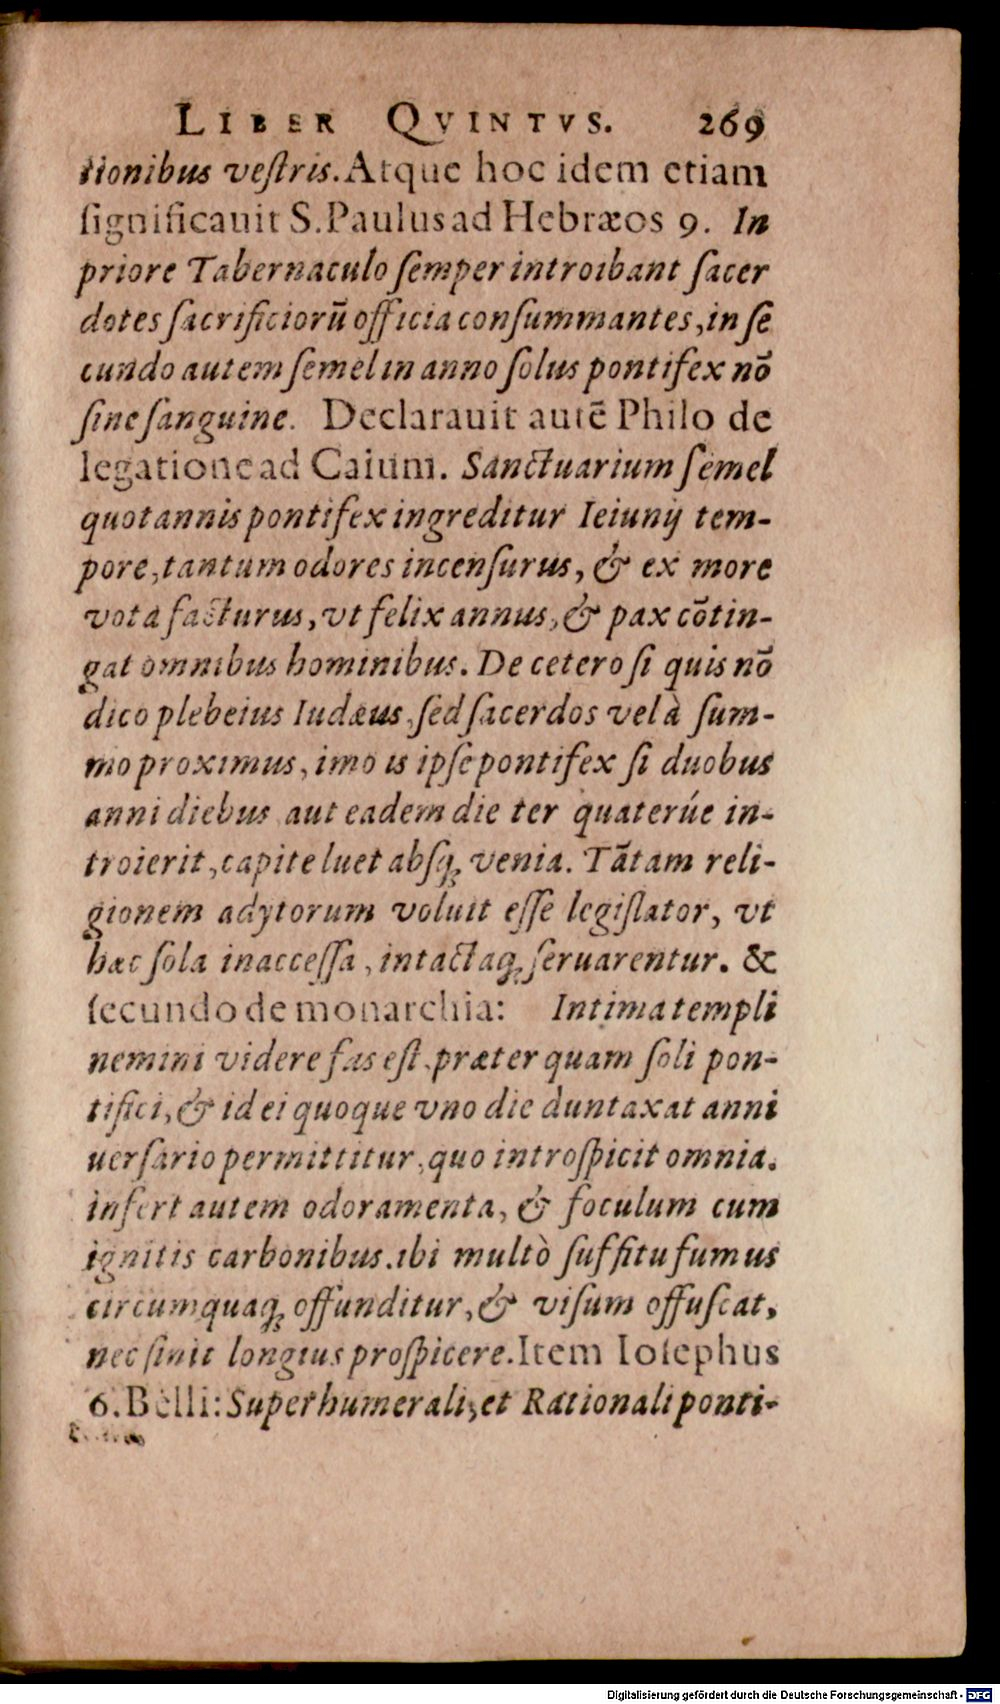 LIBER QVINTVS. 269
tionibus veſtris. Atque hoc idem etiam
ſignificauit S. Paulus ad Hebræos 9. In
priore Tabernaculo ſemper introibant ſacer
dotes ſacrificiorū officia conſummantes, in ſe
cundo autem ſemel in anno ſolus pontifex nō
ſine ſanguine. Declarauit autē Philo de
legatione ad Caium. Sanctuarium ſemel
quotannis pontifex ingreditur Ieiunij tem-
pore, tantum odores incenſurus, & ex more
vota facturus, vt felix annus, & pax cōtin-
gat omnibus hominibus. De cetero ſi quis nō
dico plebeius Iudæus, ſed ſacerdos vel à ſum-
mo proximus, imo is ipſe pontifex ſi duobus
anni diebus aut eadem die ter quaterúe in-
troierit, capite luet abſq; venia. Tātam reli-
gionem adytorum voluit eſſe legiſlator, vt
hæc ſola inacceſſa, intactaq; ſeruarentur. &
ſecundo de monarchia: Intima templi
nemini videre fas eſt, præter quam ſoli pon-
tifici, & id ei quoque vno die duntaxat anni
uerſario permittitur, quo introſpicit omnia.
infert autem odoramenta, & foculum cum
ignitis carbonibus. ibi multò ſuffitu fumus
circumquaq; offunditur, & viſum offuſcat,
nec ſinit longius proſpicere. Item Ioſephus
6. Belli: Superhumerali, et Rationali ponti-
Digitalisierung gefördert durch die Deutsche Forschungsgemeinschaft - DFG